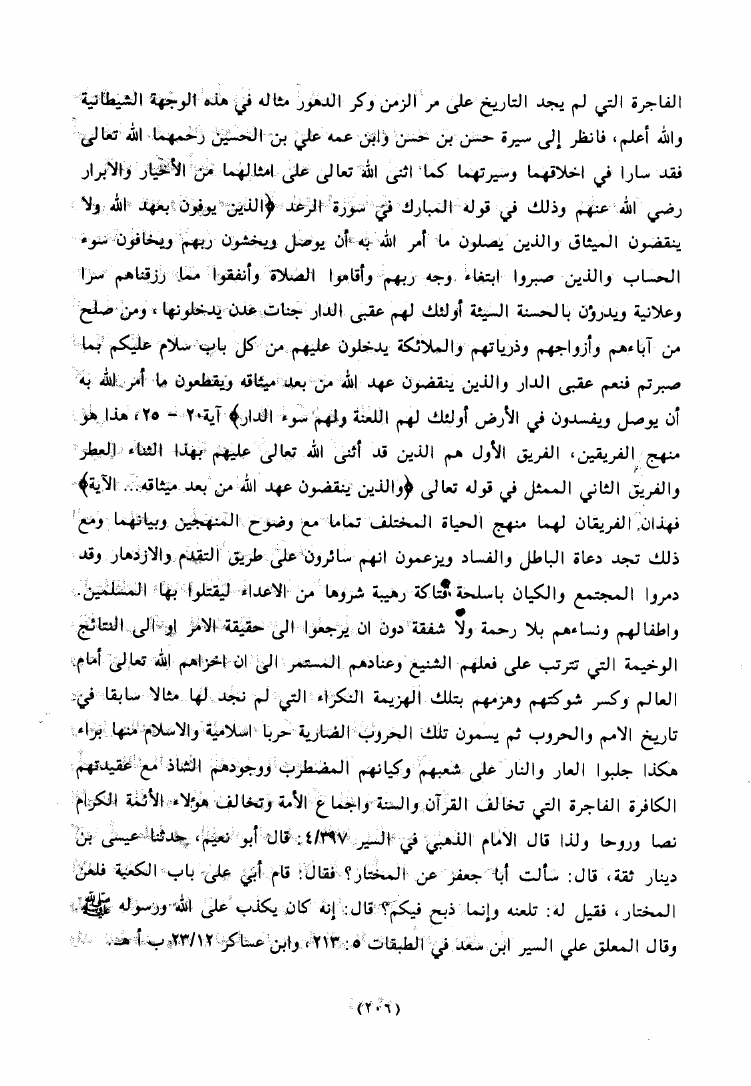 الفاجرة التي لم يجد التاريخ على مر الزمن وكر الدهور مثاله في هذه الوجهة الشيطانية
والله أعلم، فانظر إلى سيرة حسن بن حسن وابن عمه علي بن الحسين رحمهما الله تعالى
فقد سارا في اخلاقهما وسيرتهما كما اثنى الله تعالى على امثالهما من الأخيار والابرار
رضي الله عنهم وذلك في قوله المبارك في سورة الرعد ﴿الذين يوفون بعهد الله ولا
ينقضون الميثاق والذين يصلون ما أمر الله به أن يوصل ويخشون ربهم ويخافون سوء
الحساب والذين صبروا ابتغاء وجه ربهم وأقاموا الصلاة وأنفقوا مما رزقناهم سرا
وعلانية ويدرؤن بالحسنة السيئة أولئك لهم عقبى الدار جنات عدن يدخلونها، ومن صلح
من آباءهم وأزواجهم وذرياتهم والملائكة يدخلون عليهم من كل باب سلام عليكم بما
صبرتم فنعم عقبى الدار والذين ينقضون عهد الله من بعد ميثاقه ويقطعون ما أمر الله به
أن يوصل ويفسدون في الأرض أولئك لهم اللعنة ولهم سوء الدار﴾ آية ٢٠ - ٢٥، هذا هو
منهج الفريقين، الفريق الأول هم الذين قد أثنى الله تعالى عليهم بهذا الثناء العطر
والفريق الثاني الممثل في قوله تعالى ﴿والذين ينقضون عهد الله من بعد ميثاقه... الآية﴾
فهذان الفريقان لهما منهج الحياة المختلف تماما مع وضوح المنهجين وبيانهما ومع
ذلك تجد دعاة الباطل والفساد ويزعمون انهم سائرون على طريق التقدم والازدهار وقد
دمروا المجتمع والكيان باسلحة فتاكة رهيبة شروها من الاعداء ليقتلوا بها المسلمين.
واطفالهم ونساءهم بلا رحمة ولا شفقة دون ان يرجعوا الى حقيقة الامر او الى النتائج
الوخيمة التي تترتب على فعلهم الشنيع وعنادهم المستمر الى ان اخزاهم الله تعالى أمام
العالم وكسر شوكتهم وهزمهم بتلك الهزيمة النكراء التي لم نجد لها مثالا سابقا في
تاريخ الامم والحروب ثم يسمون تلك الحروب الضارية حربا اسلامية والاسلام منها براء
هكذا جلبوا العار والنار على شعبهم وكيانهم المضطرب ووجودهم الشاذ مع عقيدتهم
الكافرة الفاجرة التي تخالف القرآن والسنة واجماع الأمة وتخالف هؤلاء الأئمة الكرام
نصا وروحا ولذا قال الامام الذهبي في السير ٤/٣٩٧: قال أبو نعيم، حدثنا عيسى بن
دينار ثقة، قال: سألت أبا جعفر عن المختار؟ فقال: قام أبي على باب الكعبة فلعن
المختار، فقيل له: تلعنه وإنما ذبح فيكم؟ قال: إنه كان يكذب على الله ورسوله ﷺ.
وقال المعلق علي السير ابن سعد في الطبقات ٥: ٢١٣، وابن عساكر ٢٣/١٢ ب أ هـ.
(٢٠٦)